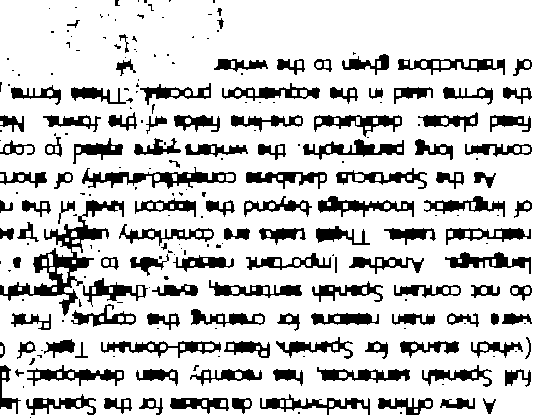 A new offline handwritten database for the Spanish
full Spanish sentences, has recently been developed:
(which stands for Spanish Restricted-domain Task of
were two main reasons for creating this corpus. First
do not contain Spanish sentences, even though Spanish
language. Another important reason was to create a
restricted tasks. These tasks are commonly used in
of linguistic knowledge beyond the lexicon level in the
As the Spartacus database consisted mainly of short
contain long paragraphs, the writers were asked to
fixed places: dedicated one-line fields in the forms.
the forms used in the acquisition process. These forms
of instructions given to the writer